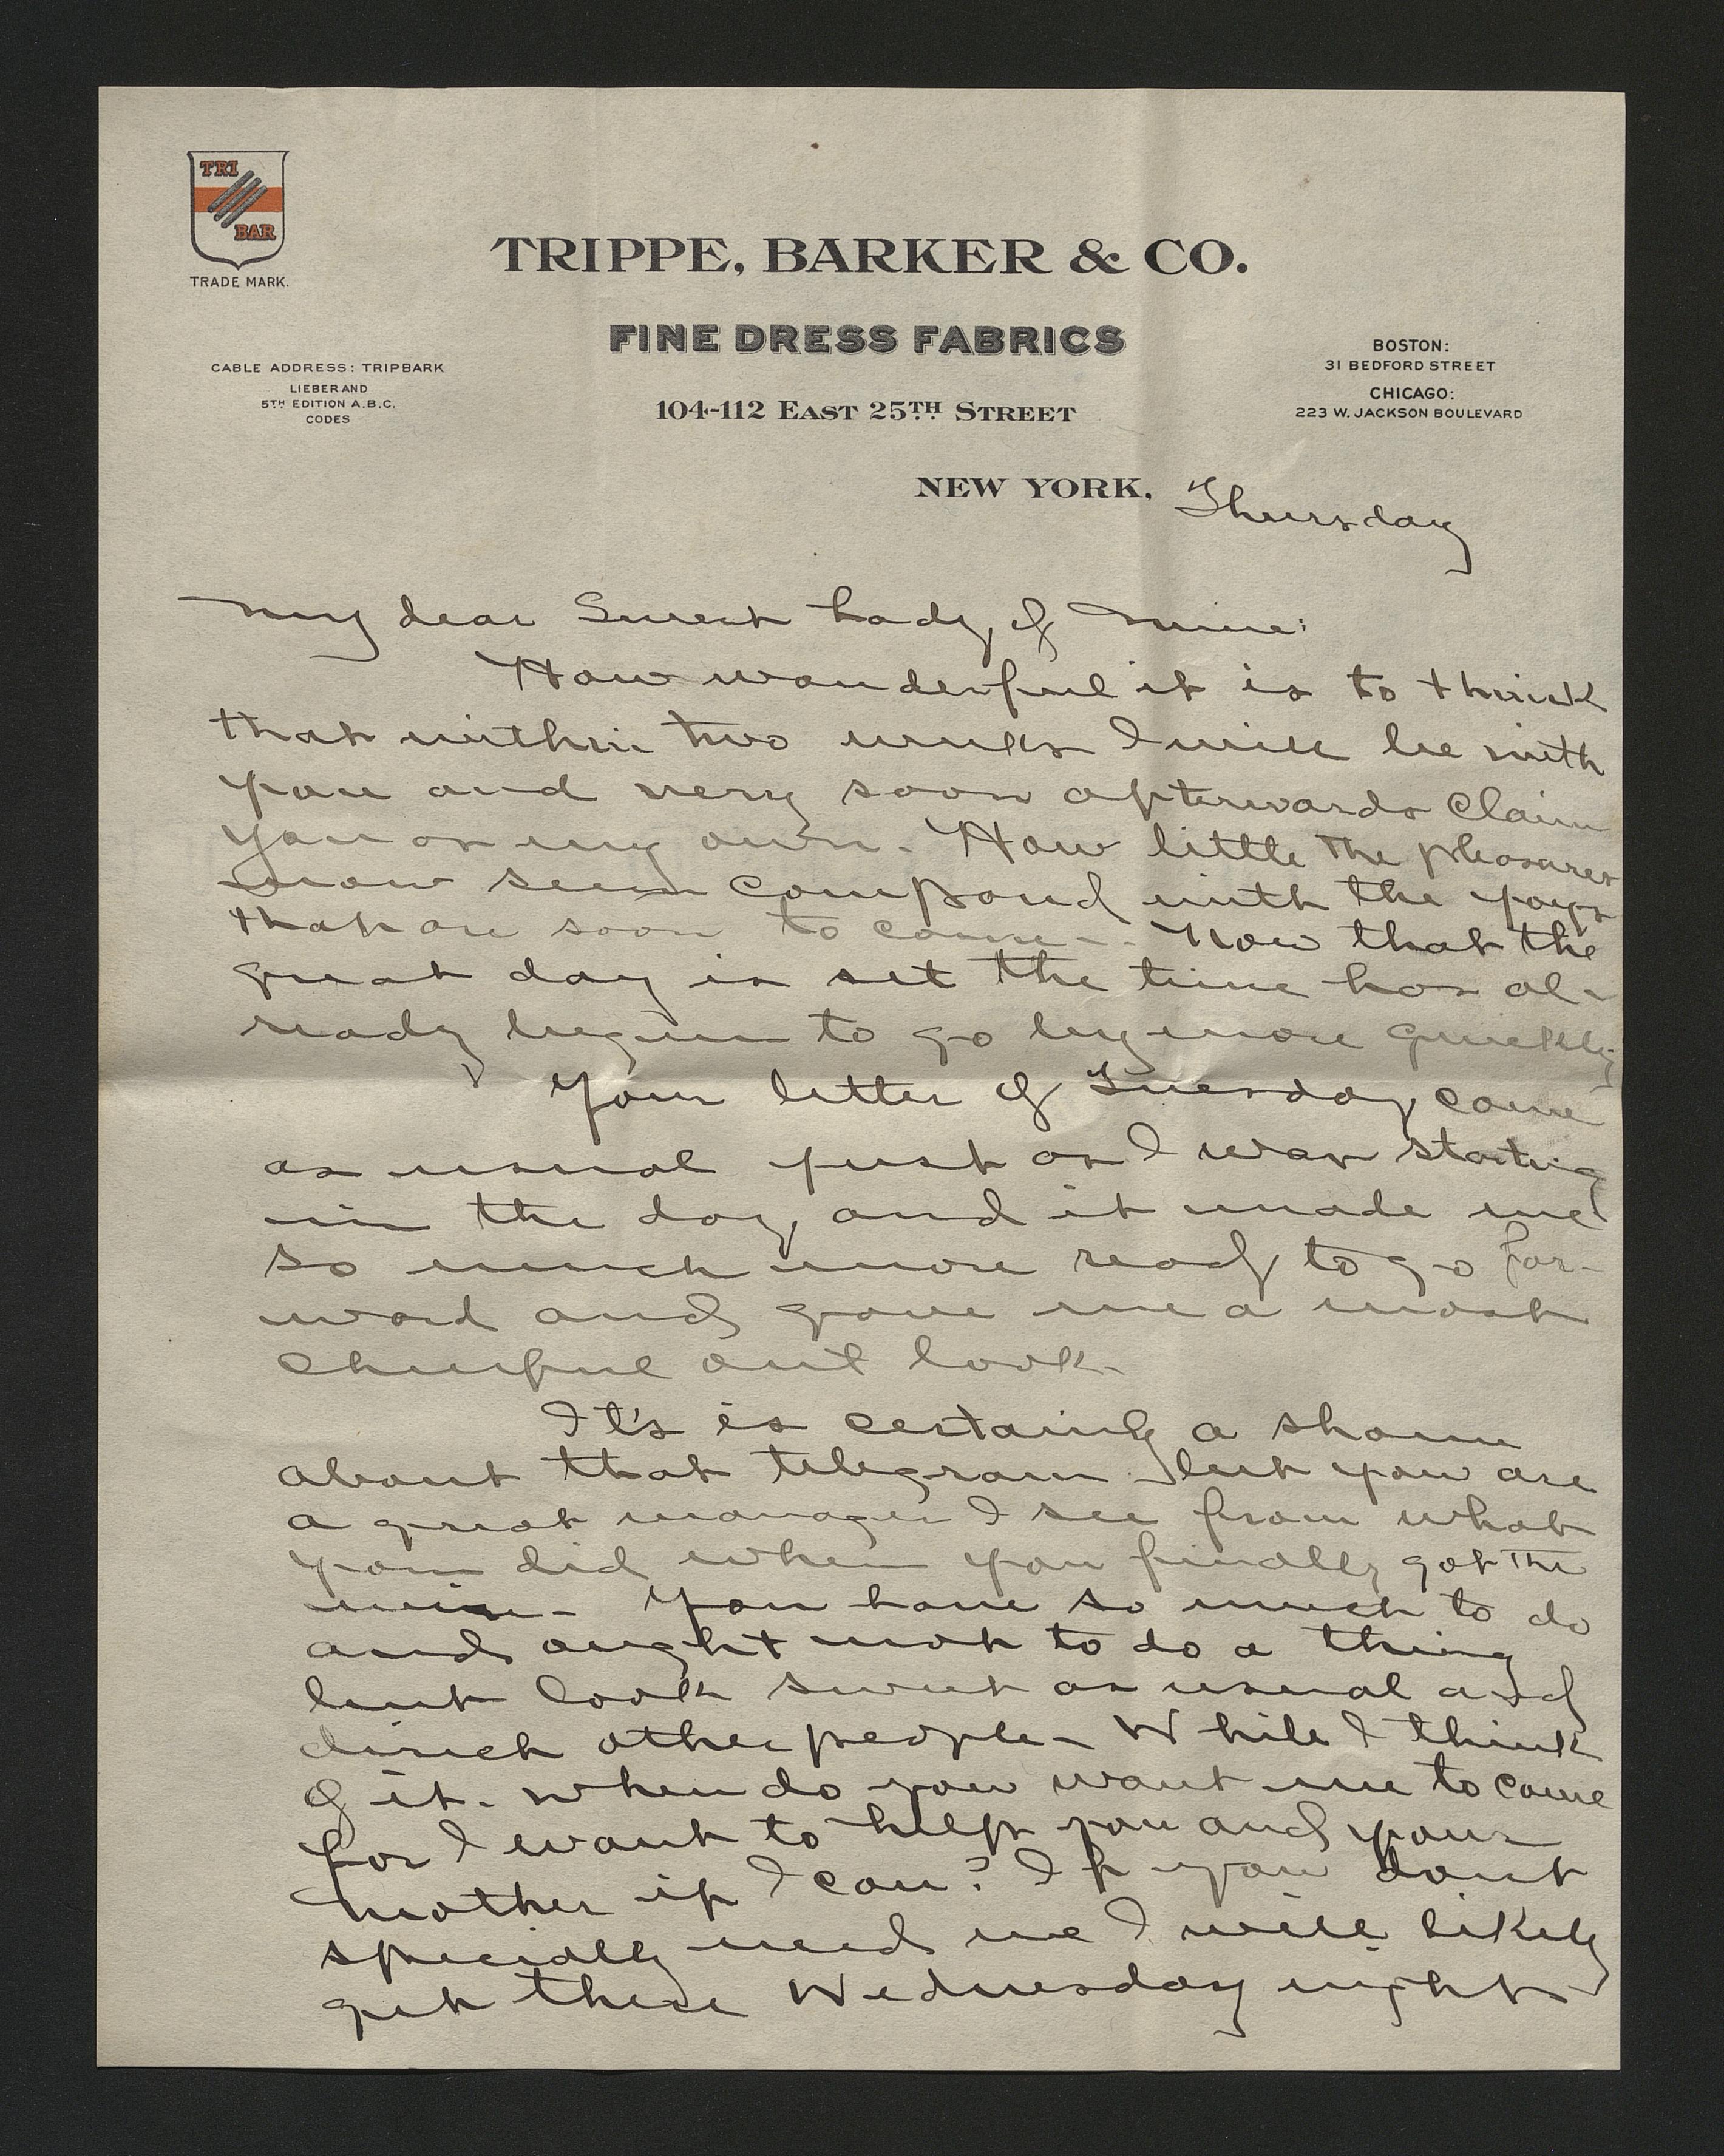 TRI
BAR
TRADE MARK.
TRIPPE, BARKER & CO.
FINE DRESS FABRICS
CABLE ADDRESS: TRIPBARK
LIEBER AND
5TH EDITION A.B.C.
CODES
104-112 EAST 25TH STREET
BOSTON:
31 BEDFORD STREET
CHICAGO:
223 W. JACKSON BOULEVARD
NEW YORK, Thursday
My dear Sweet Lady of Mine:
How wonderful it is to think
that within two weeks I will be with
you and very soon afterwards claim
you as my own. How little the pleasures
now seem compared with the joys
that are soon to come - . Now that the
great day is set the time has al-
ready begun to go by more quickly.
Your letter of Tuesday came
as usual just as I was starting
in the day, and it made me
so much more ready to go for-
ward and gave me a most
cheerful out look.
It's is certainly a shame
about that telegram but you are
a great manager I see from what
you did when you finally got the
wire - You have so much to do
and ought not to do a thing
but look sweet as usual and
direct other people - While I think
of it - when do you want me to come
for I want to help you and your
mother if I can? If you dont
specially need me I will likely
get there Wednesday night